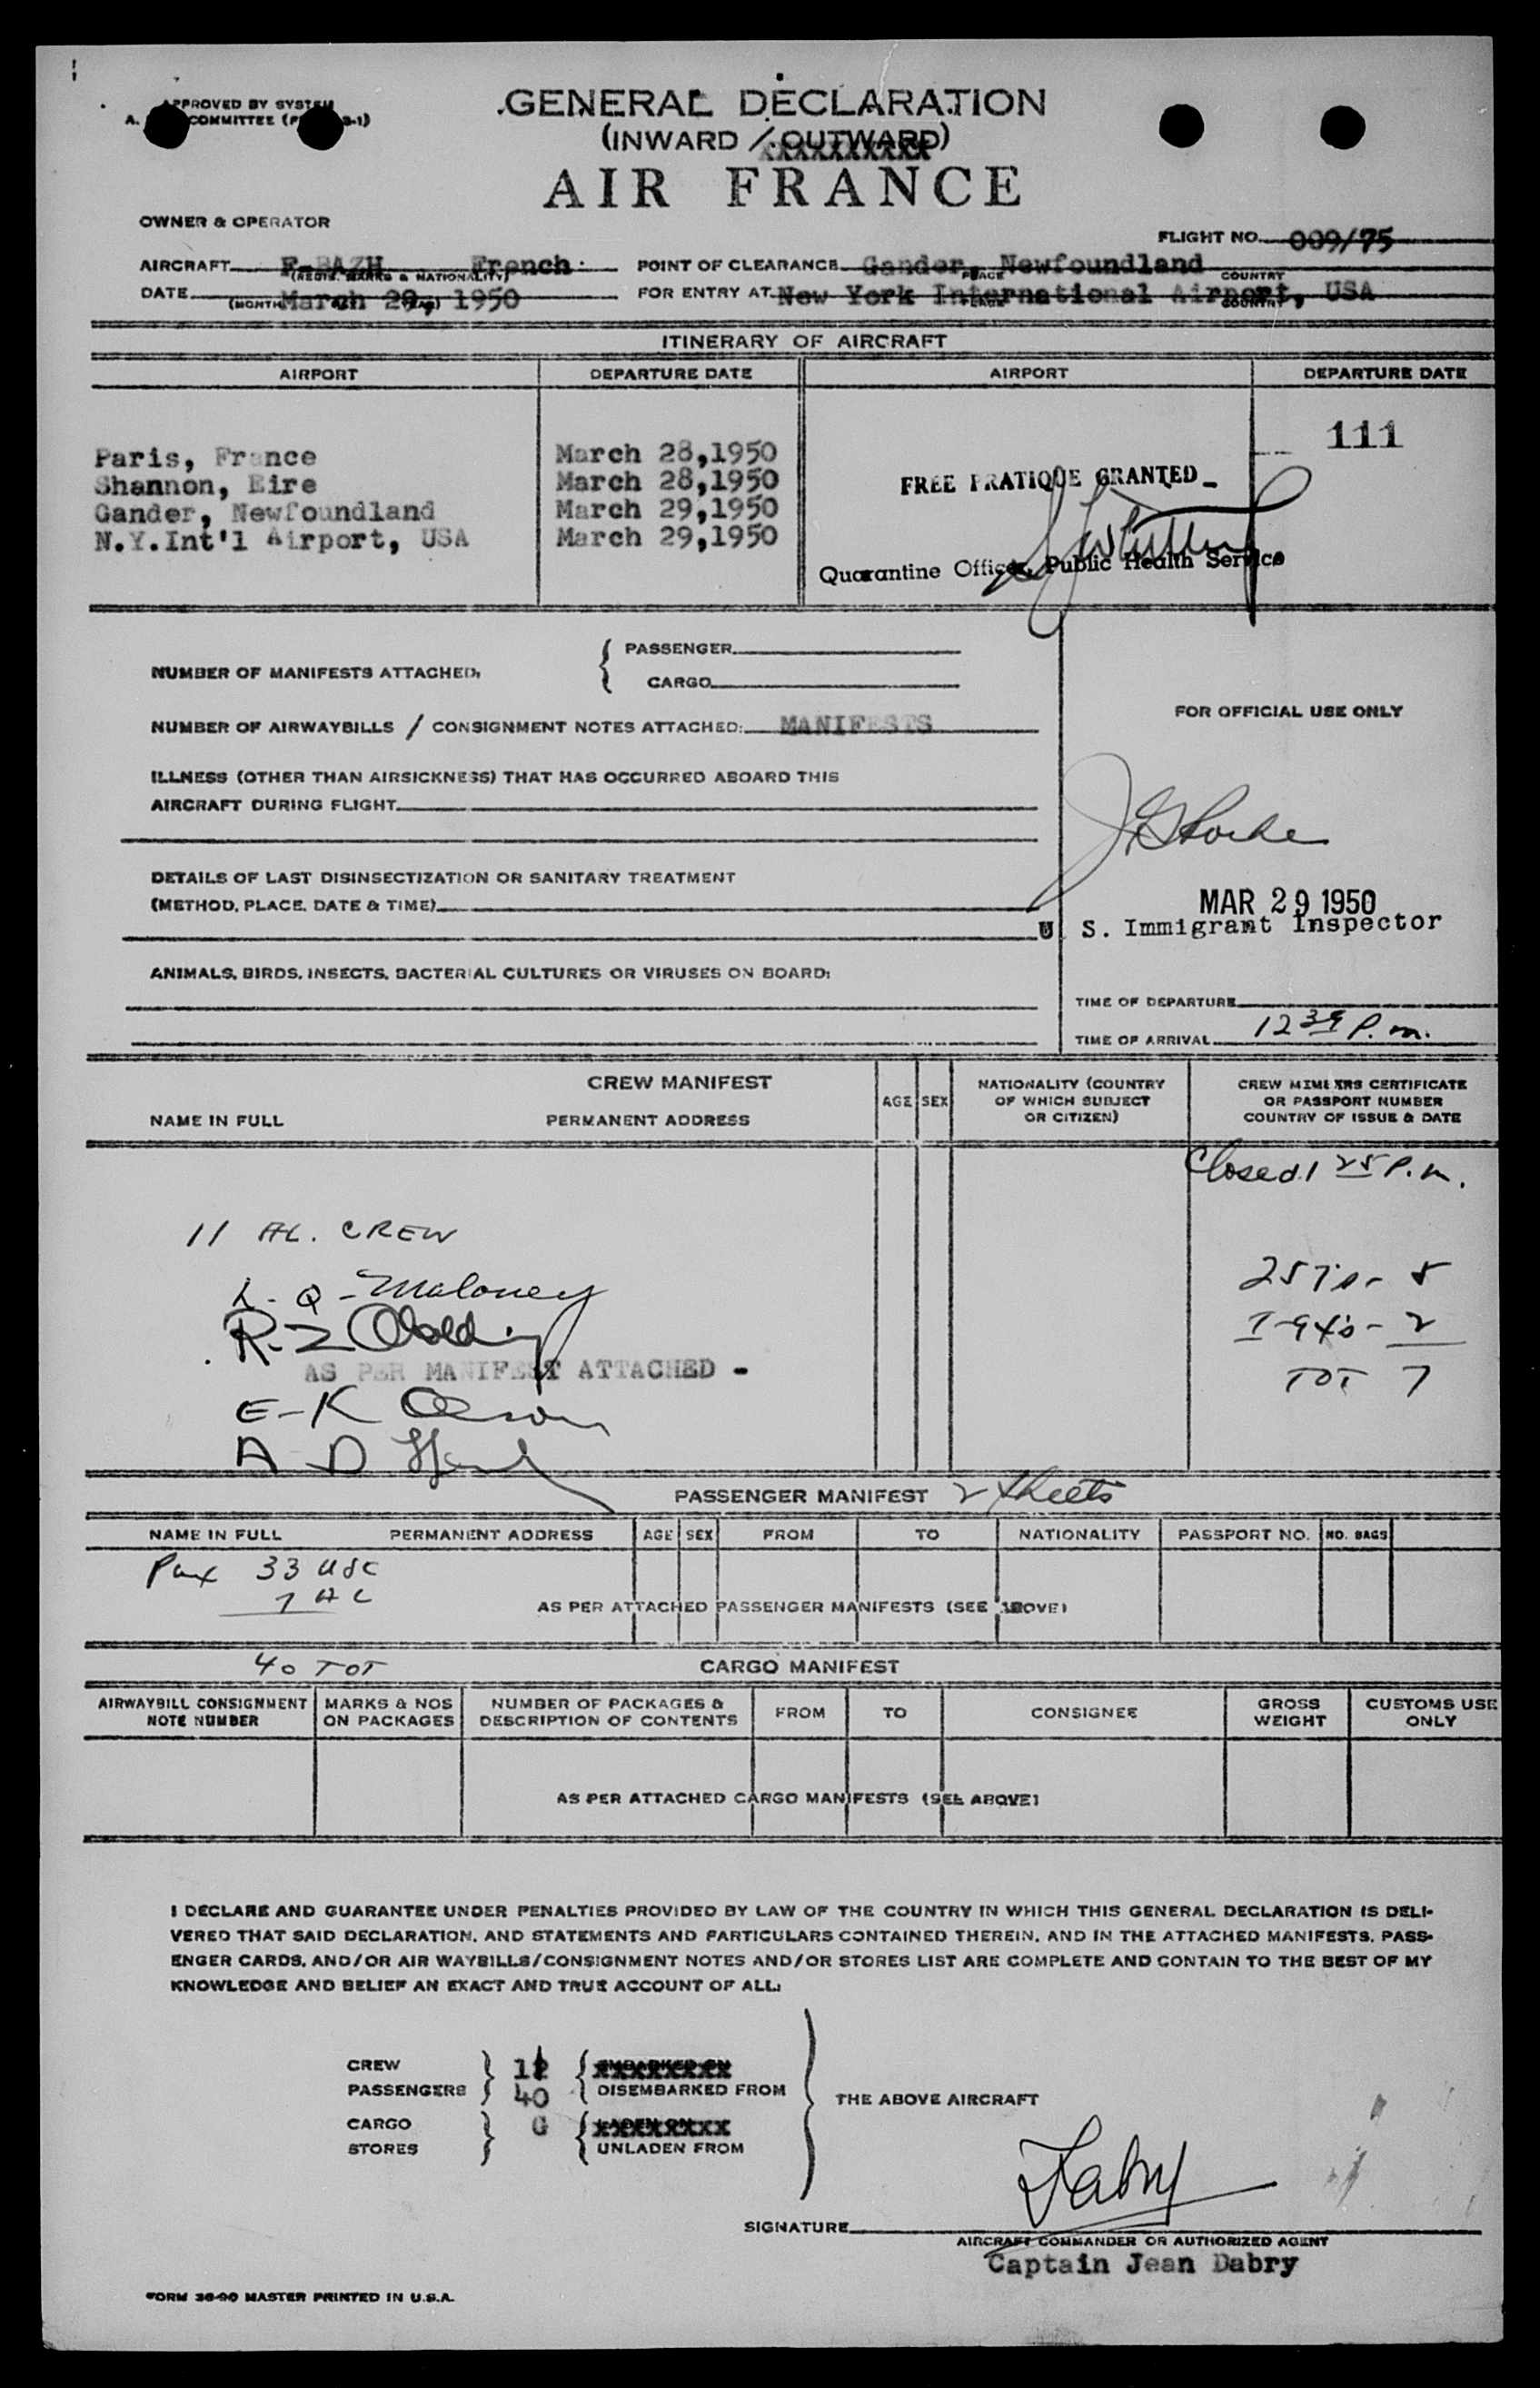 APPROVED BY SYSTEM
A. COMMITTEE 3-1)
GENERAL DECLARATION
(INWARD / OUTWARD)
AIR FRANCE
OWNER & OPERATOR
FLIGHT NO. 009/75
AIRCRAFT F-BAZH French POINT OF CLEARANCE Gander, Newfoundland
(REGIS. MARKS & NATIONALITY) PLACE COUNTRY
DATE March 29, 1950 FOR ENTRY AT New York International Airport, USA
(MONTH DAY) PLACE COUNTRY
ITINERARY OF AIRCRAFT
AIRPORT DEPARTURE DATE AIRPORT DEPARTURE DATE
111
Paris, France March 28,1950
Shannon, Eire March 28,1950
Gander, Newfoundland March 29,1950
N.Y.Int'l Airport, USA March 29,1950
FREE PRATIQUE GRANTED
Quarantine Officer, Public Health Service
NUMBER OF MANIFESTS ATTACHED, PASSENGER
CARGO
FOR OFFICIAL USE ONLY
NUMBER OF AIRWAYBILLS / CONSIGNMENT NOTES ATTACHED: MANIFESTS
ILLNESS (OTHER THAN AIRSICKNESS) THAT HAS OCCURRED ABOARD THIS
AIRCRAFT DURING FLIGHT
DETAILS OF LAST DISINSECTIZATION OR SANITARY TREATMENT
(METHOD, PLACE, DATE & TIME)
MAR 29 1950
U S. Immigrant Inspector
ANIMALS, BIRDS, INSECTS, BACTERIAL CULTURES OR VIRUSES ON BOARD:
TIME OF DEPARTURE
TIME OF ARRIVAL 12 39 P.m.
CREW MANIFEST
NAME IN FULL PERMANENT ADDRESS AGE SEX NATIONALITY (COUNTRY OF WHICH SUBJECT OR CITIZEN) CREW MEMBERS CERTIFICATE OR PASSPORT NUMBER COUNTRY OF ISSUE & DATE
Closed 1 25 P.m.
11 AL. CREW
L. Q - Maloney
AS PER MANIFEST ATTACHED -
E-K Olson
A D
257's - 5
I-94's - 2
TOT 7
PASSENGER MANIFEST 2 sheets
NAME IN FULL PERMANENT ADDRESS AGE SEX FROM TO NATIONALITY PASSPORT NO. NO. BAGS
Pax 33 USC
7 AL
AS PER ATTACHED PASSENGER MANIFESTS (SEE ABOVE)
40 TOT
CARGO MANIFEST
AIRWAYBILL CONSIGNMENT NOTE NUMBER MARKS & NOS ON PACKAGES NUMBER OF PACKAGES & DESCRIPTION OF CONTENTS FROM TO CONSIGNEE GROSS WEIGHT CUSTOMS USE ONLY
AS PER ATTACHED CARGO MANIFESTS (SEE ABOVE)
I DECLARE AND GUARANTEE UNDER PENALTIES PROVIDED BY LAW OF THE COUNTRY IN WHICH THIS GENERAL DECLARATION IS DELI-
VERED THAT SAID DECLARATION, AND STATEMENTS AND PARTICULARS CONTAINED THEREIN, AND IN THE ATTACHED MANIFESTS, PASS-
ENGER CARDS, AND/OR AIR WAYBILLS/CONSIGNMENT NOTES AND/OR STORES LIST ARE COMPLETE AND CONTAIN TO THE BEST OF MY
KNOWLEDGE AND BELIEF AN EXACT AND TRUE ACCOUNT OF ALL:
CREW 11 EMBARKED ON
PASSENGERS 40 DISEMBARKED FROM
THE ABOVE AIRCRAFT
CARGO G LADEN ON
STORES UNLADEN FROM
SIGNATURE Dabry
AIRCRAFT COMMANDER OR AUTHORIZED AGENT
Captain Jean Dabry
FORM 36-90 MASTER PRINTED IN U.S.A.